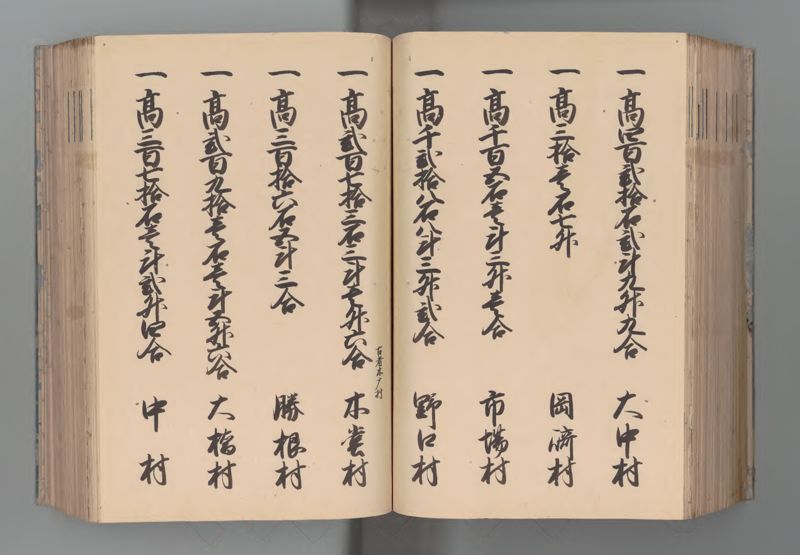 一 高四百弐拾石弐斗九升九合 大中村
一 高三拾壱石七升 岡崎村
一 高千百五石壱斗三升壱合 市場村
一 高千弐拾八石八斗三升弐合 野口村
古者木ノ村
一 高弐百七拾三石三斗七升六合 木裳村
一 高三百拾六石五斗三合 勝根村
一 高弐百九拾壱石壱斗五升六合 大橋村
一 高三百七拾石壱斗弐升四合 中村